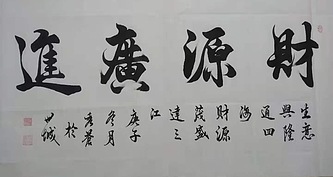 財源廣進
生意
興隆
通四
海
財源
茂盛
達三
江
庚子
冬月
於
世城